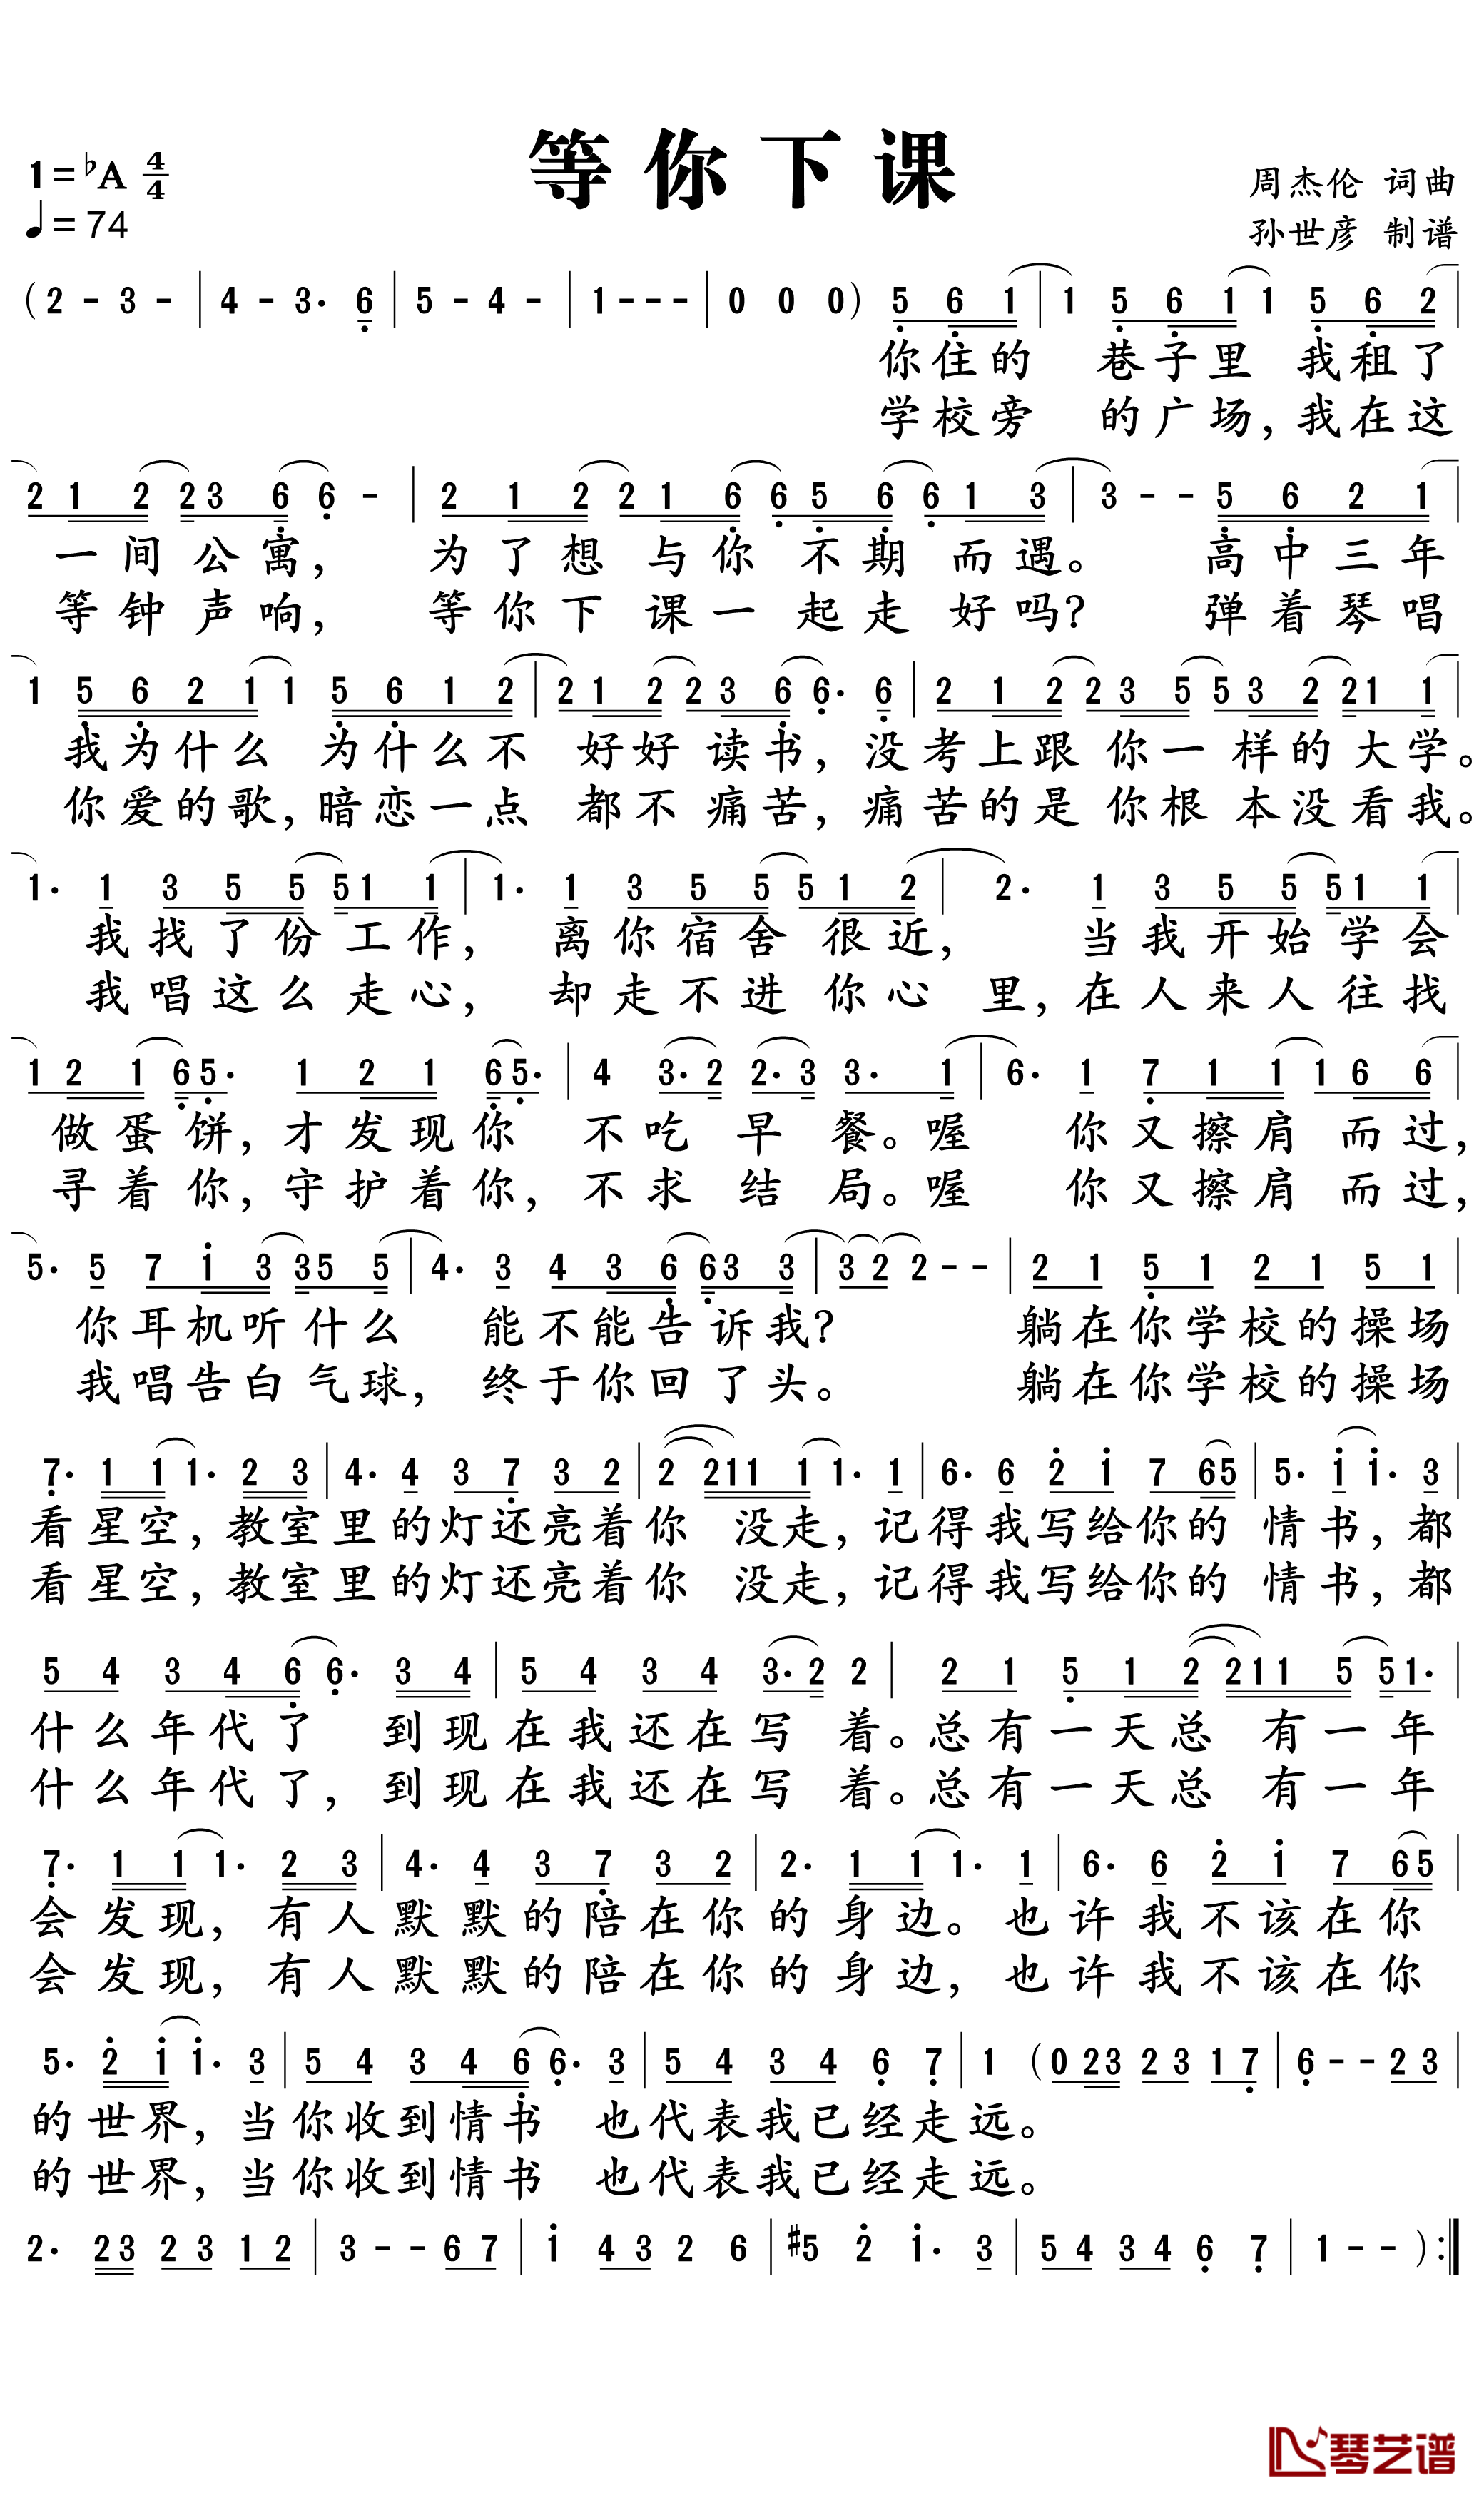 等你下课
1=♭A 4/4
♩=74
周杰伦 词曲
孙世彦 制谱
(2 - 3 - | 4 - 3· 6 | 5 - 4 - | 1 - - - | 0 0 0) 5 6 1 | 1 5 6 1 1 5 6 2 |
你住的 巷子里 我租了
学校旁 的广场,我在这
2 1 2 2 3 6 6 - | 2 1 2 2 1 6 6 5 6 6 1 3 | 3 - - 5 6 2 1 |
一间公寓, 为了想与你不期而遇。 高中三年
等钟声响, 等你下课一起走好吗? 弹着琴唱
1 5 6 2 1 1 5 6 1 2 | 2 1 2 2 3 6 6· 6 | 2 1 2 2 3 5 5 3 2 2 1 1 |
我为什么 为什么不 好好读书,没考上跟你一样的大学。
你爱的歌,暗恋一点 都不痛苦,痛苦的是你根本没看我。
1· 1 3 5 5 5 1 1 | 1· 1 3 5 5 5 1 2 | 2· 1 3 5 5 5 1 1 |
我找了份工作, 离你宿舍很近, 当我开始学会
我唱这么走心, 却走不进你心里,在人来人往找
1 2 1 6 5· 1 2 1 6 5· | 4 3· 2 2· 3 3· 1 | 6· 1 7 1 1 1 6 6 |
做蛋饼,才发现你 不吃早餐。喔 你又擦肩而过,
寻着你,守护着你,不求结局。喔 你又擦肩而过,
5· 5 7 1 3 3 5 5 | 4· 3 4 3 6 6 3 3 | 3 2 2 - - | 2 1 5 1 2 1 5 1 |
你耳机听什么 能不能告诉我? 躺在你学校的操场
我唱告白气球, 终于你回了头。 躺在你学校的操场
7· 1 1 1· 2 3 | 4· 4 3 7 3 2 | 2 2 1 1 1 1· 1 | 6· 6 2 1 7 6 5 | 5· 1 1· 3 |
看星空,教室里的灯还亮着你 没走,记得我写给你的 情书,都
看星空,教室里的灯还亮着你 没走,记得我写给你的 情书,都
5 4 3 4 6 6· 3 4 | 5 4 3 4 3· 2 2 | 2 1 5 1 2 2 1 1 5 5 1· |
什么年代了 到现在我还在写着。总有一天总有一年
什么年代了,到现在我还在写着。总有一天总有一年
7· 1 1 1· 2 3 | 4· 4 3 7 3 2 | 2· 1 1 1· 1 | 6· 6 2 1 7 6 5 |
会发现,有人默默的陪在你的身边。也许我不该在你
会发现,有人默默的陪在你的身边,也许我不该在你
5· 2 1 1· 3 | 5 4 3 4 6 6· 3 | 5 4 3 4 6 7 | 1 (0 2 3 2 3 1 7 | 6 - - 2 3 |
的世界,当你收到情书 也代表我已经走远。
的世界,当你收到情书 也代表我已经走远。
2· 2 3 2 3 1 2 | 3 - - 6 7 | 1 4 3 2 6 | #5 2 1· 3 | 5 4 3 4 6 7 | 1 - - ) :|
琴艺谱